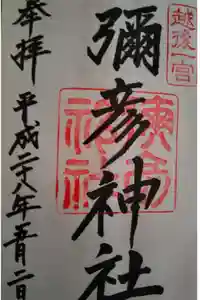 越後一宮
彌彦神社
彌彦
神社
奉拝
平成二十八年五月二日